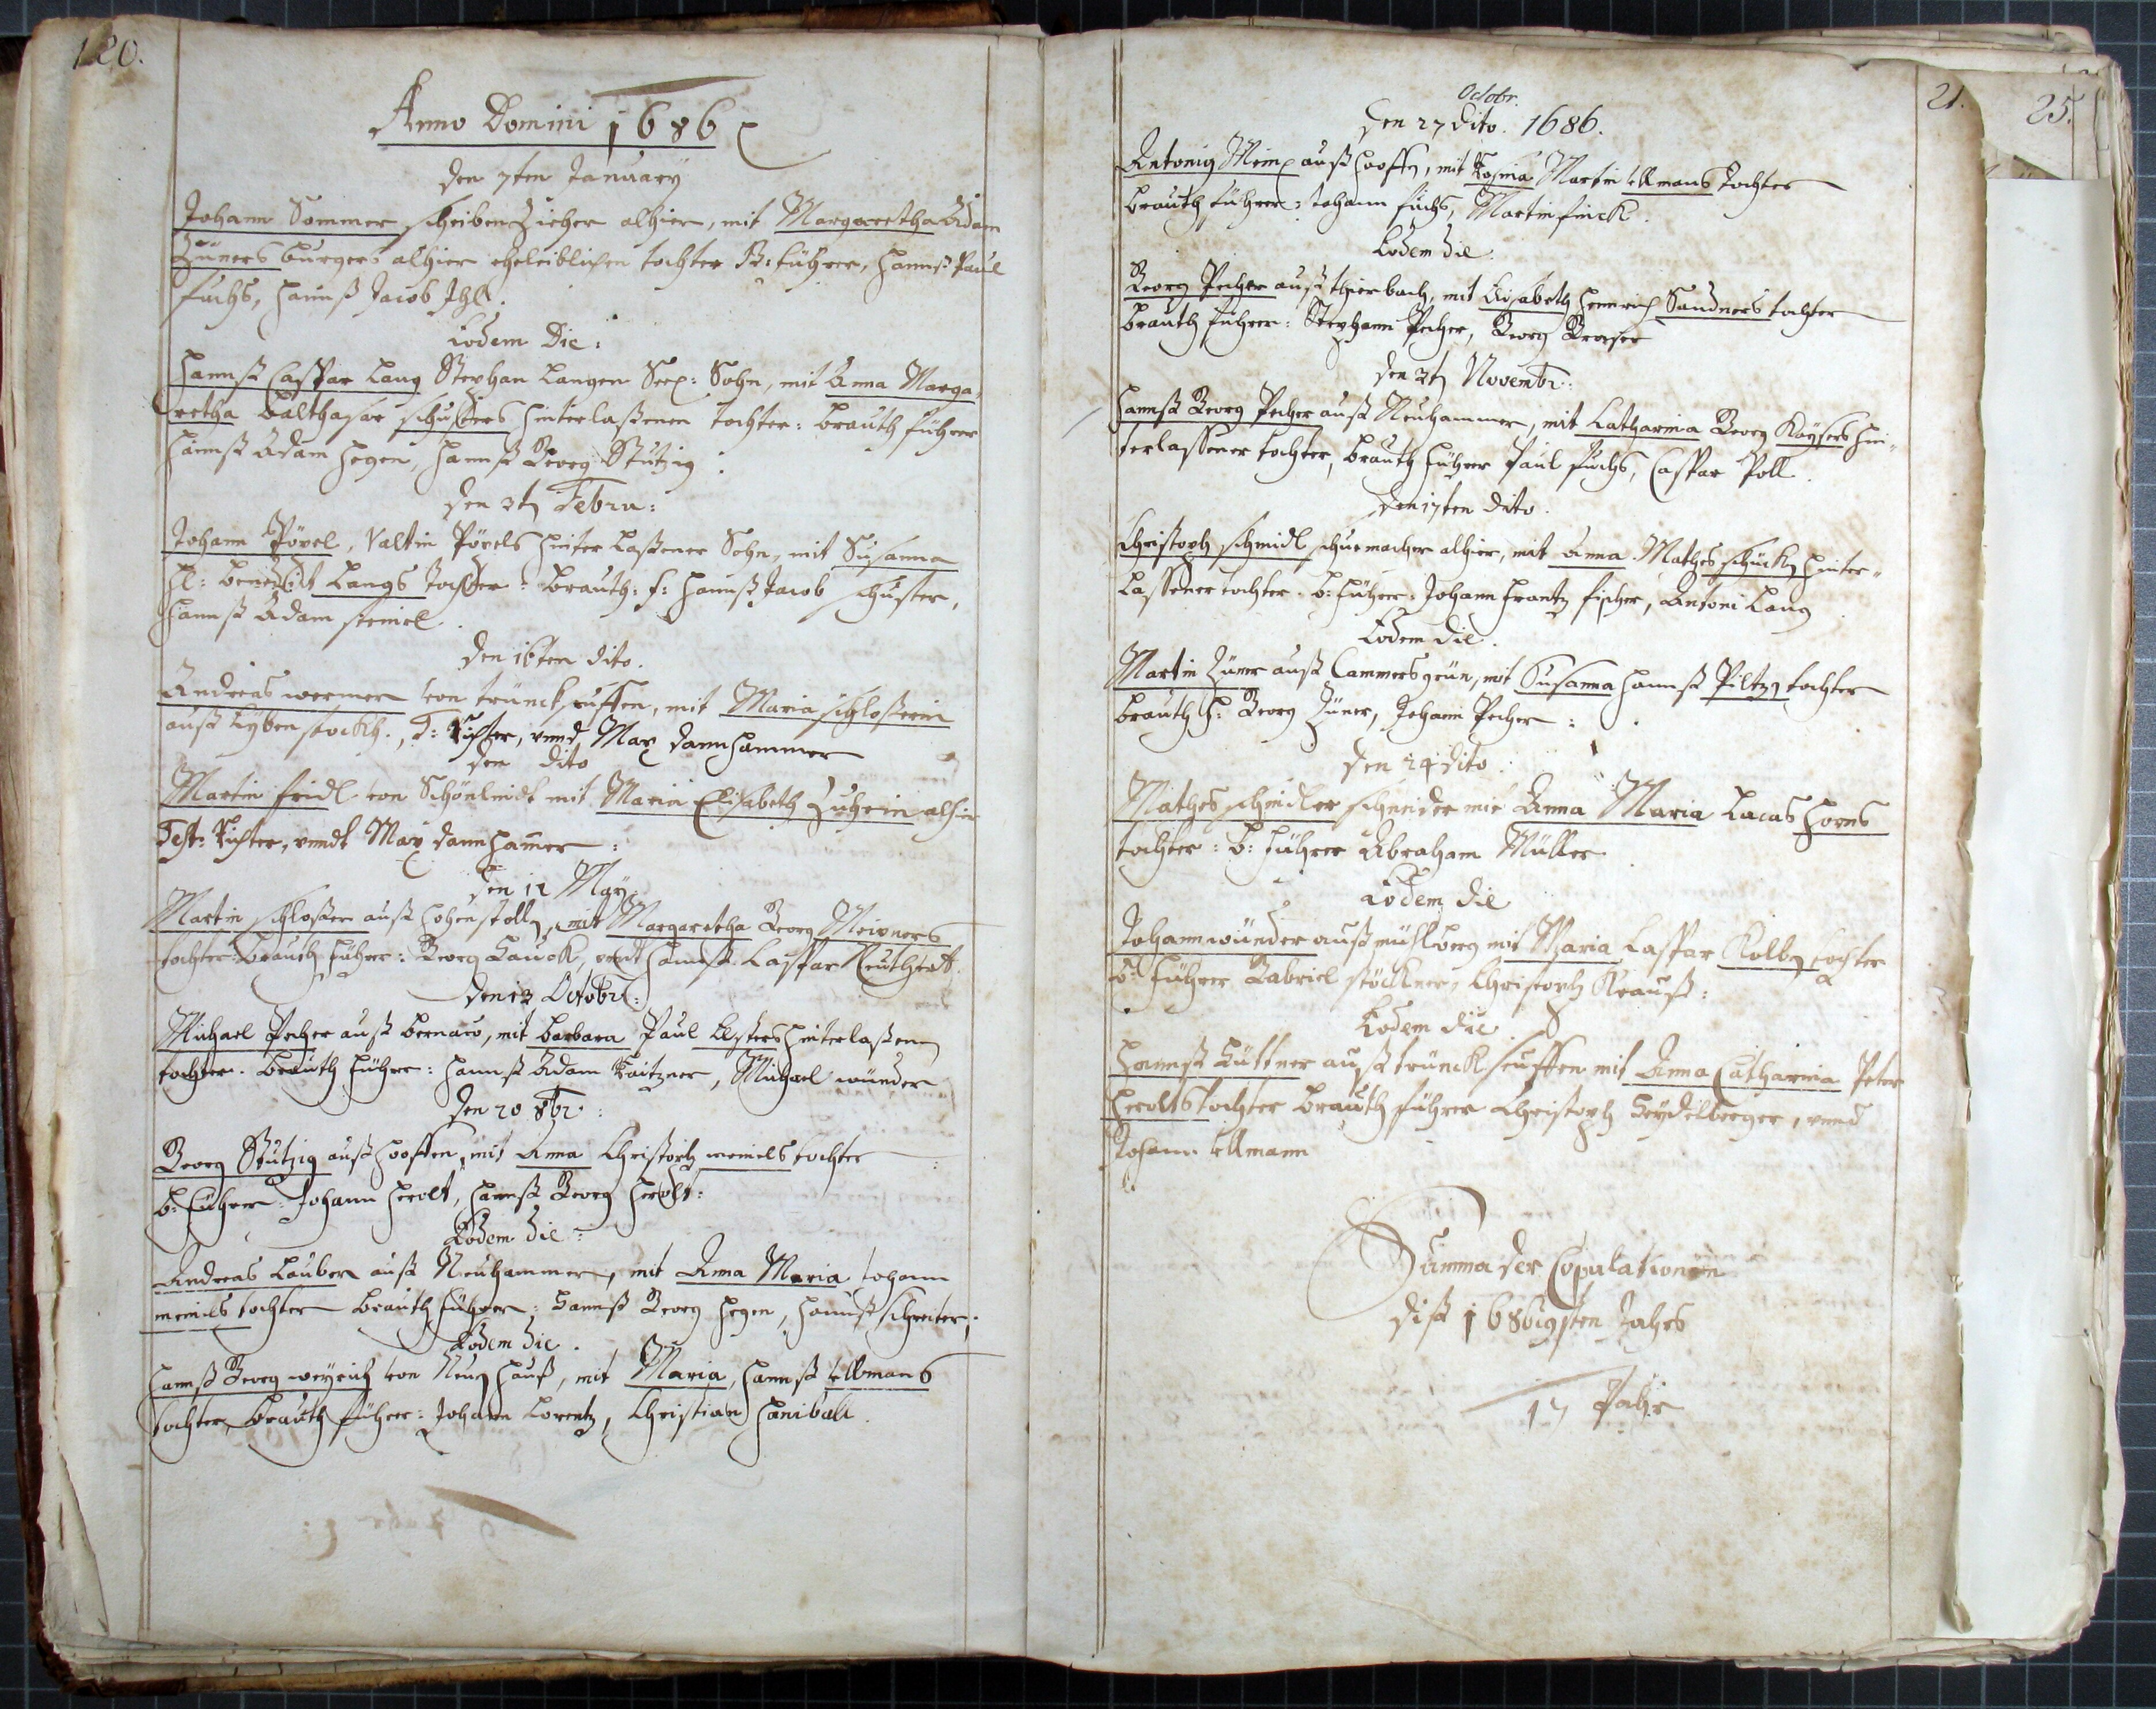 120.
Anno Domini 1686
den 7ten January
Johann Sommer scheiben Zieher alhier, mit Margaretha Adam
Züners burgers alhier eheleiblichen tochter B: führer, Hannß Paul
fuchs, Hannß Jacob
Eodem Die:
Hannß Caspar Lang Stephan Langen Seel: Sohn, mit Anna Marga
retha Balthasar schusters hinterlaßenen tochter: brauth führer
Hannß Adam Hegen, Hannß Georg Stützig:
den 3t Febru:
Johann Pövel, Valtin Pövels hinterlaßener Sohn, mit Susanna
Hl: Benedict Langs tochter: brauth: f: Hannß Jacob schuster,
Hannß Adam meinel.
den 16ten dito.
Andreas werner von trünckseuffen, mit Maria schloßerin
auß Eybenstockh., T: Richter, vnnd Max dannhammer
den dito
Martin fridl von Schönlindt mit Maria Elisabeth alhier
Test: Richter, vnndt Max dannhamer:
den 12 May.
Martin schloßer auß hohenstolln, mit Margaretha Georg Meixners
tochter: brauth führer: Georg Hauck, vndt Hannß Caspar
den 13 Octobr:
Michael Pecher auß bernau, mit barbara Paul hinterlaßene
tochter. brauth führer: Hannß Adam, Michael wünder
den 20 8br:
Georg Stützig auß hoffen, mit Anna Christoph meinels tochter
b: führer: Johann Herolt, Hannß Georg Herolt:
Eodem die:
Andreas Lauber auß Neuhammer, mit Anna Maria Johann
meinels tochter brauth führer: Hannß Georg Hegen, Hannß schreiter;
Eodem die.
Hannß Georg weyrich von Neuhauß, mit Maria, Hannß Ullmans
tochter, brauth führer: Johann Lorentz, Christian Hanibali.
21.
25.
Octobr.
den 27 dito. 1686.
Antonig auß hoffen, mit Rosina Martin Ullmans tochter
brauth führer: Johann fuchs, Martin finck.
Eodem die.
Georg Pecher auß thierbach, mit Elisabeth Heinrich Sandners tochter
brauth führer: Stephann Pecher, Georg
den 3t Novembr:
Hannß Georg Pecher auß Neuhammer, mit Catharina Georg Kaysers hin-
terlassener tochter, brauth führer Paul fuchs, Caspar Poll.
den 17ten dito.
Christoph schmidl schumacher alhier, mit Anna Mathes hinter-
Lassener tochter. b: führer: Johann Frantz fischer, Antoni Lang
Eodem die.
Martin Züner auß Cammersgrün, mit Susanna Hannß Piltz tochter
brauth f: Georg Züner, Johann Pecher:
den 24 dito:
Mathes schindler schneider mit Anna Maria Lucas Horns
tochter: b: führer Abraham Müller
Eodem die
Johann wünder auß mühlberg mit Maria Caspar Kolbn tochter
b: führer Gabriel stöckner, Christoph Krauß:
Eodem die
Hannß Hüttner auß trünckseuffen mit Anna Catharina Peter
Herolts tochter brauth führer Christoph Heydelberger, vnnd
Johann Ullmann
Summa der Copulationen
diß 1686igsten Jahrs
17 Pahr